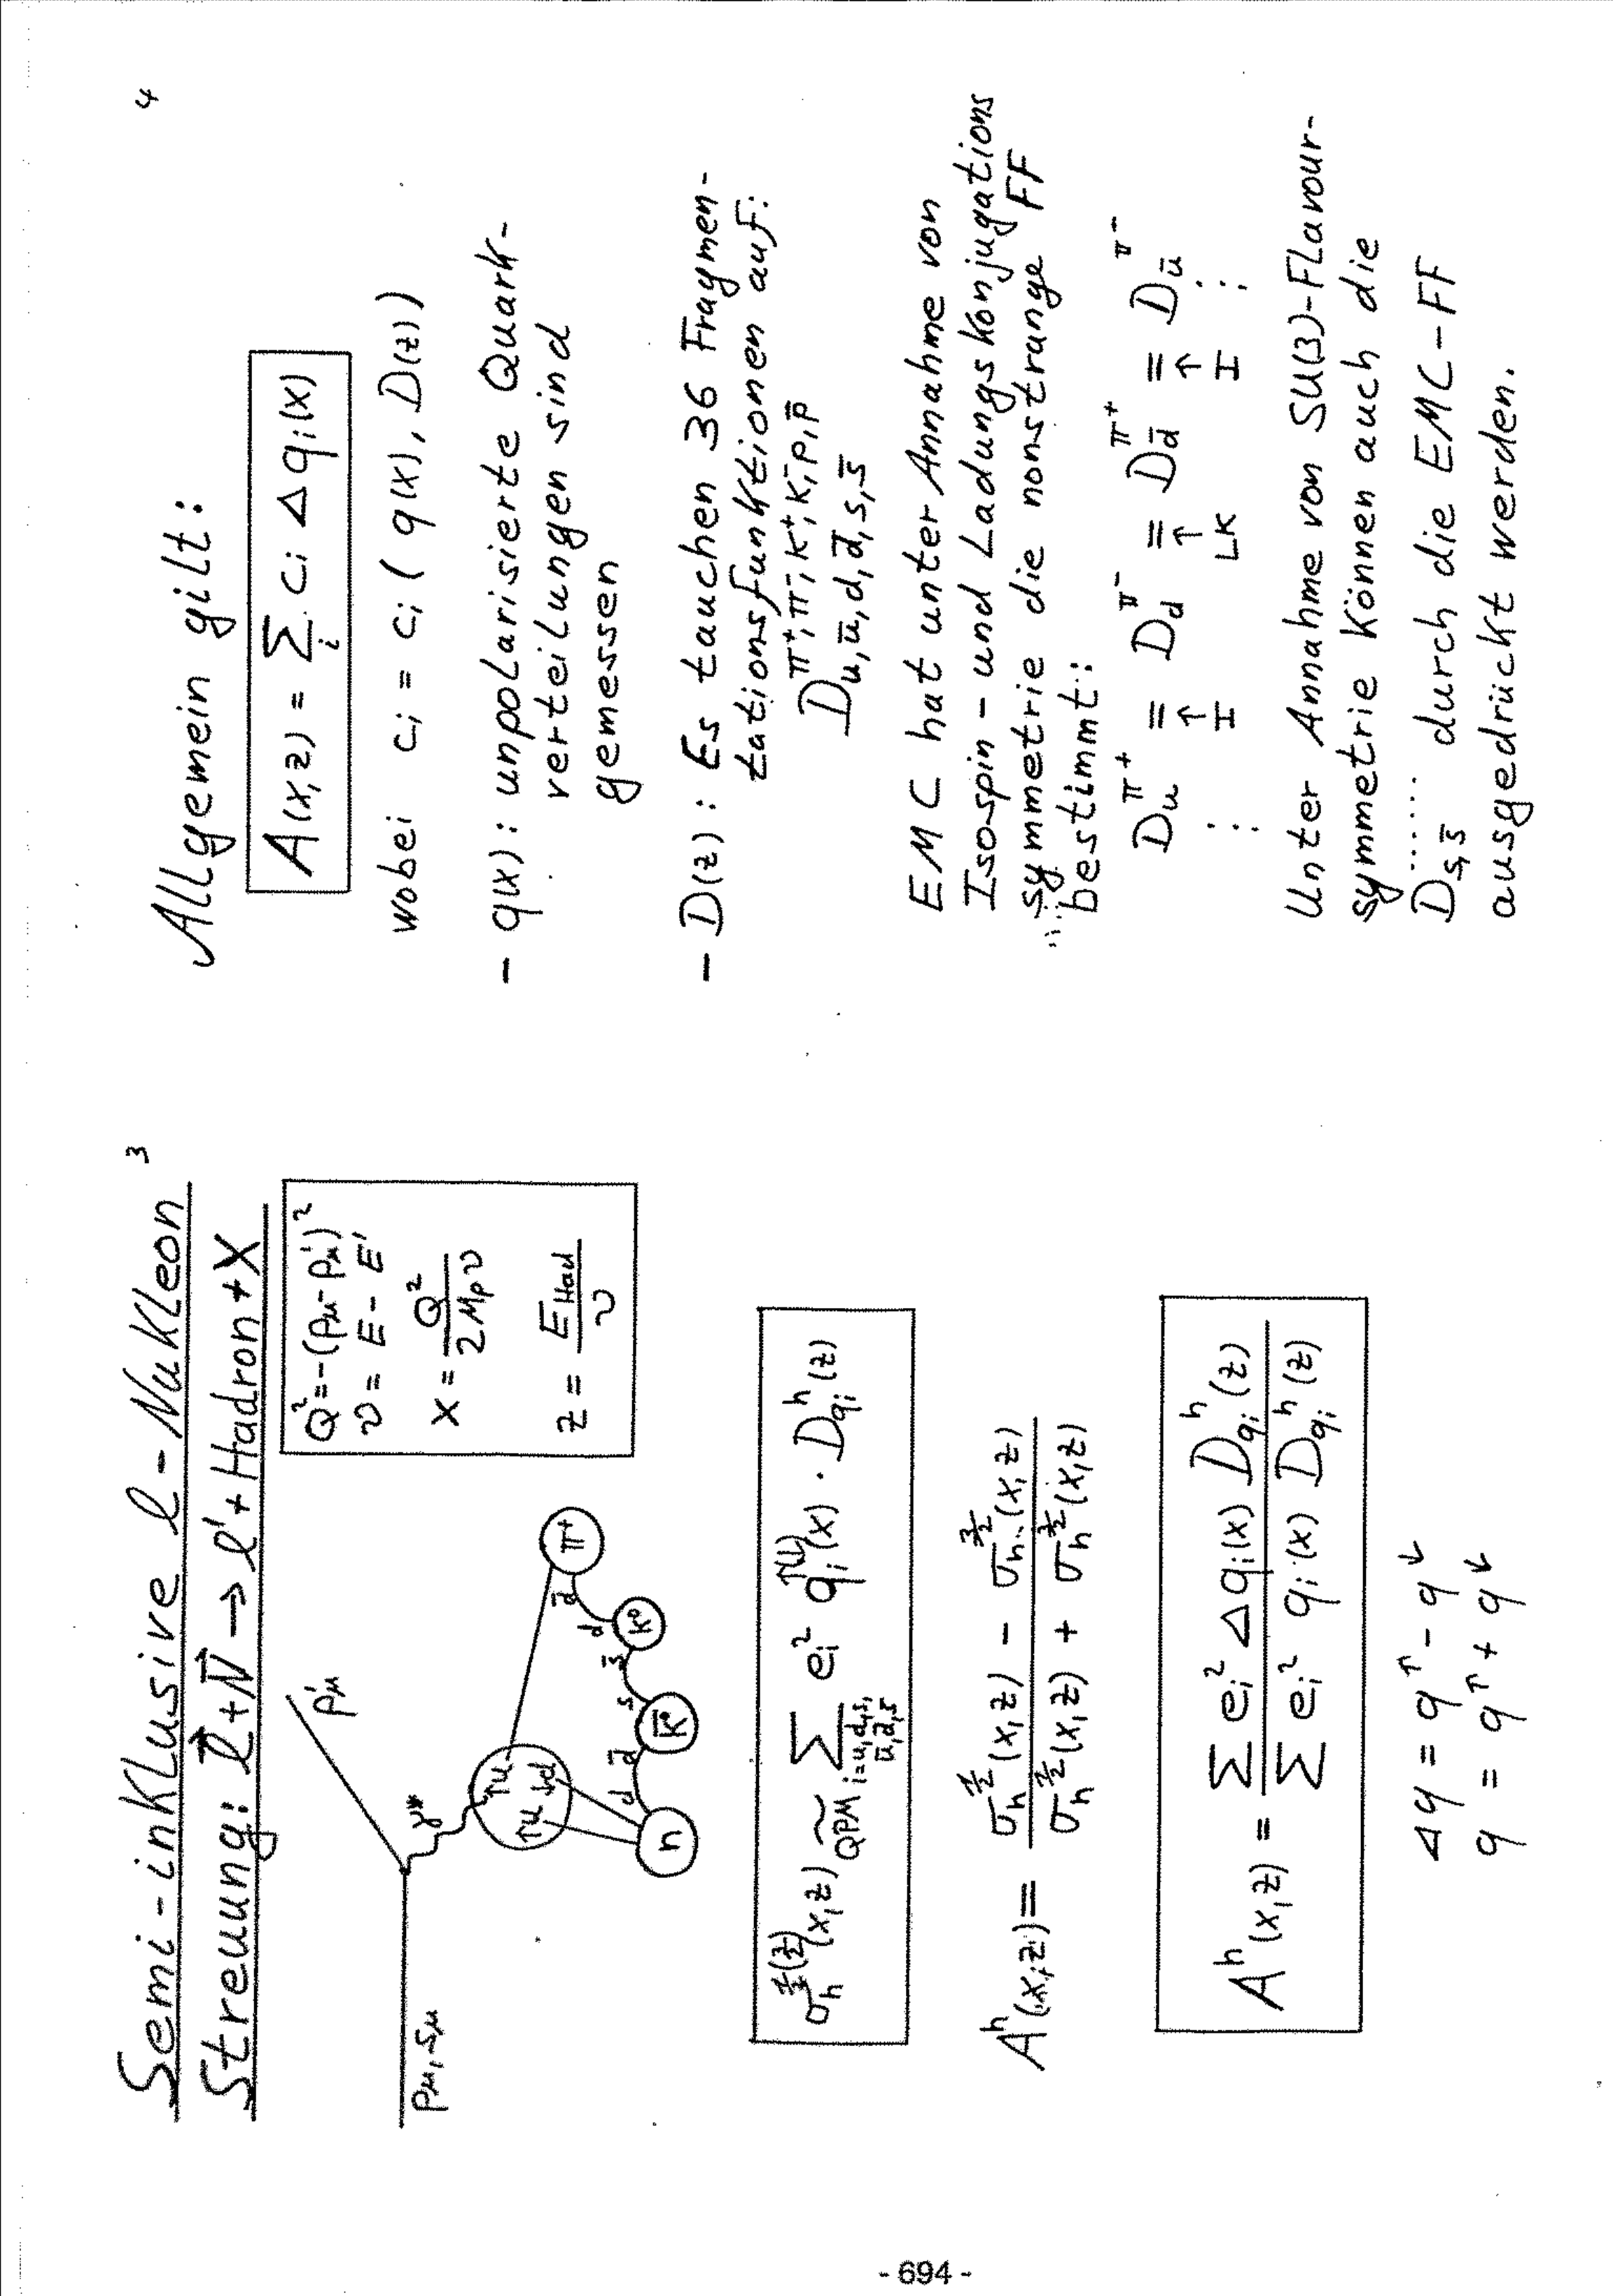 Semi-inklusive l-Nukleon 3
Streuung: l⃗+N⃗ → l'+Hadron+X
Q²=-(pμ-pμ')²
ν = E - E'
x = Q² / 2Mpν
z = EHad / ν
pμ, sμ
pμ'
γ*
↑u
↑u ↓d
π⁺
d̄
d
K⁰
s̄
s
K̄⁰
d̄
d
n
σh^½(3/2) (x,z) ≈QPM Σ i=u,d,s,ū,d̄,s̄ ei² qi^↑(↓)(x) · Dqi^h(z)
A^h(x,z) = σh^½(x,z) - σh^3/2(x,z) / σh^½(x,z) + σh^3/2(x,z)
A^h(x,z) = Σ ei² Δqi(x) Dqi^h(z) / Σ ei² qi(x) Dqi^h(z)
Δq = q↑ - q↓
q = q↑ + q↓
4
Allgemein gilt:
A(x,z) = Σi ci Δqi(x)
wobei ci = ci ( q(x), D(z))
- q(x): unpolarisierte Quark-
verteilungen sind
gemessen
- D(z): Es tauchen 36 Fragmen-
tationsfunktionen auf:
D u,ū,d,d̄,s,s̄ ^π⁺,π⁻,K⁺,K⁻,p,p̄
EMC hat unter Annahme von
Isospin- und Ladungskonjugations
symmetrie die nonstrange FF
bestimmt:
Du^π⁺ = Dd^π⁻ = Dd̄^π⁺ = Dū^π⁻
↑ ↑ ↑
: I LK I :
Unter Annahme von SU(3)-Flavour-
symmetrie können auch die
Ds,s̄ ...... durch die EMC-FF
ausgedrückt werden.
- 694 -